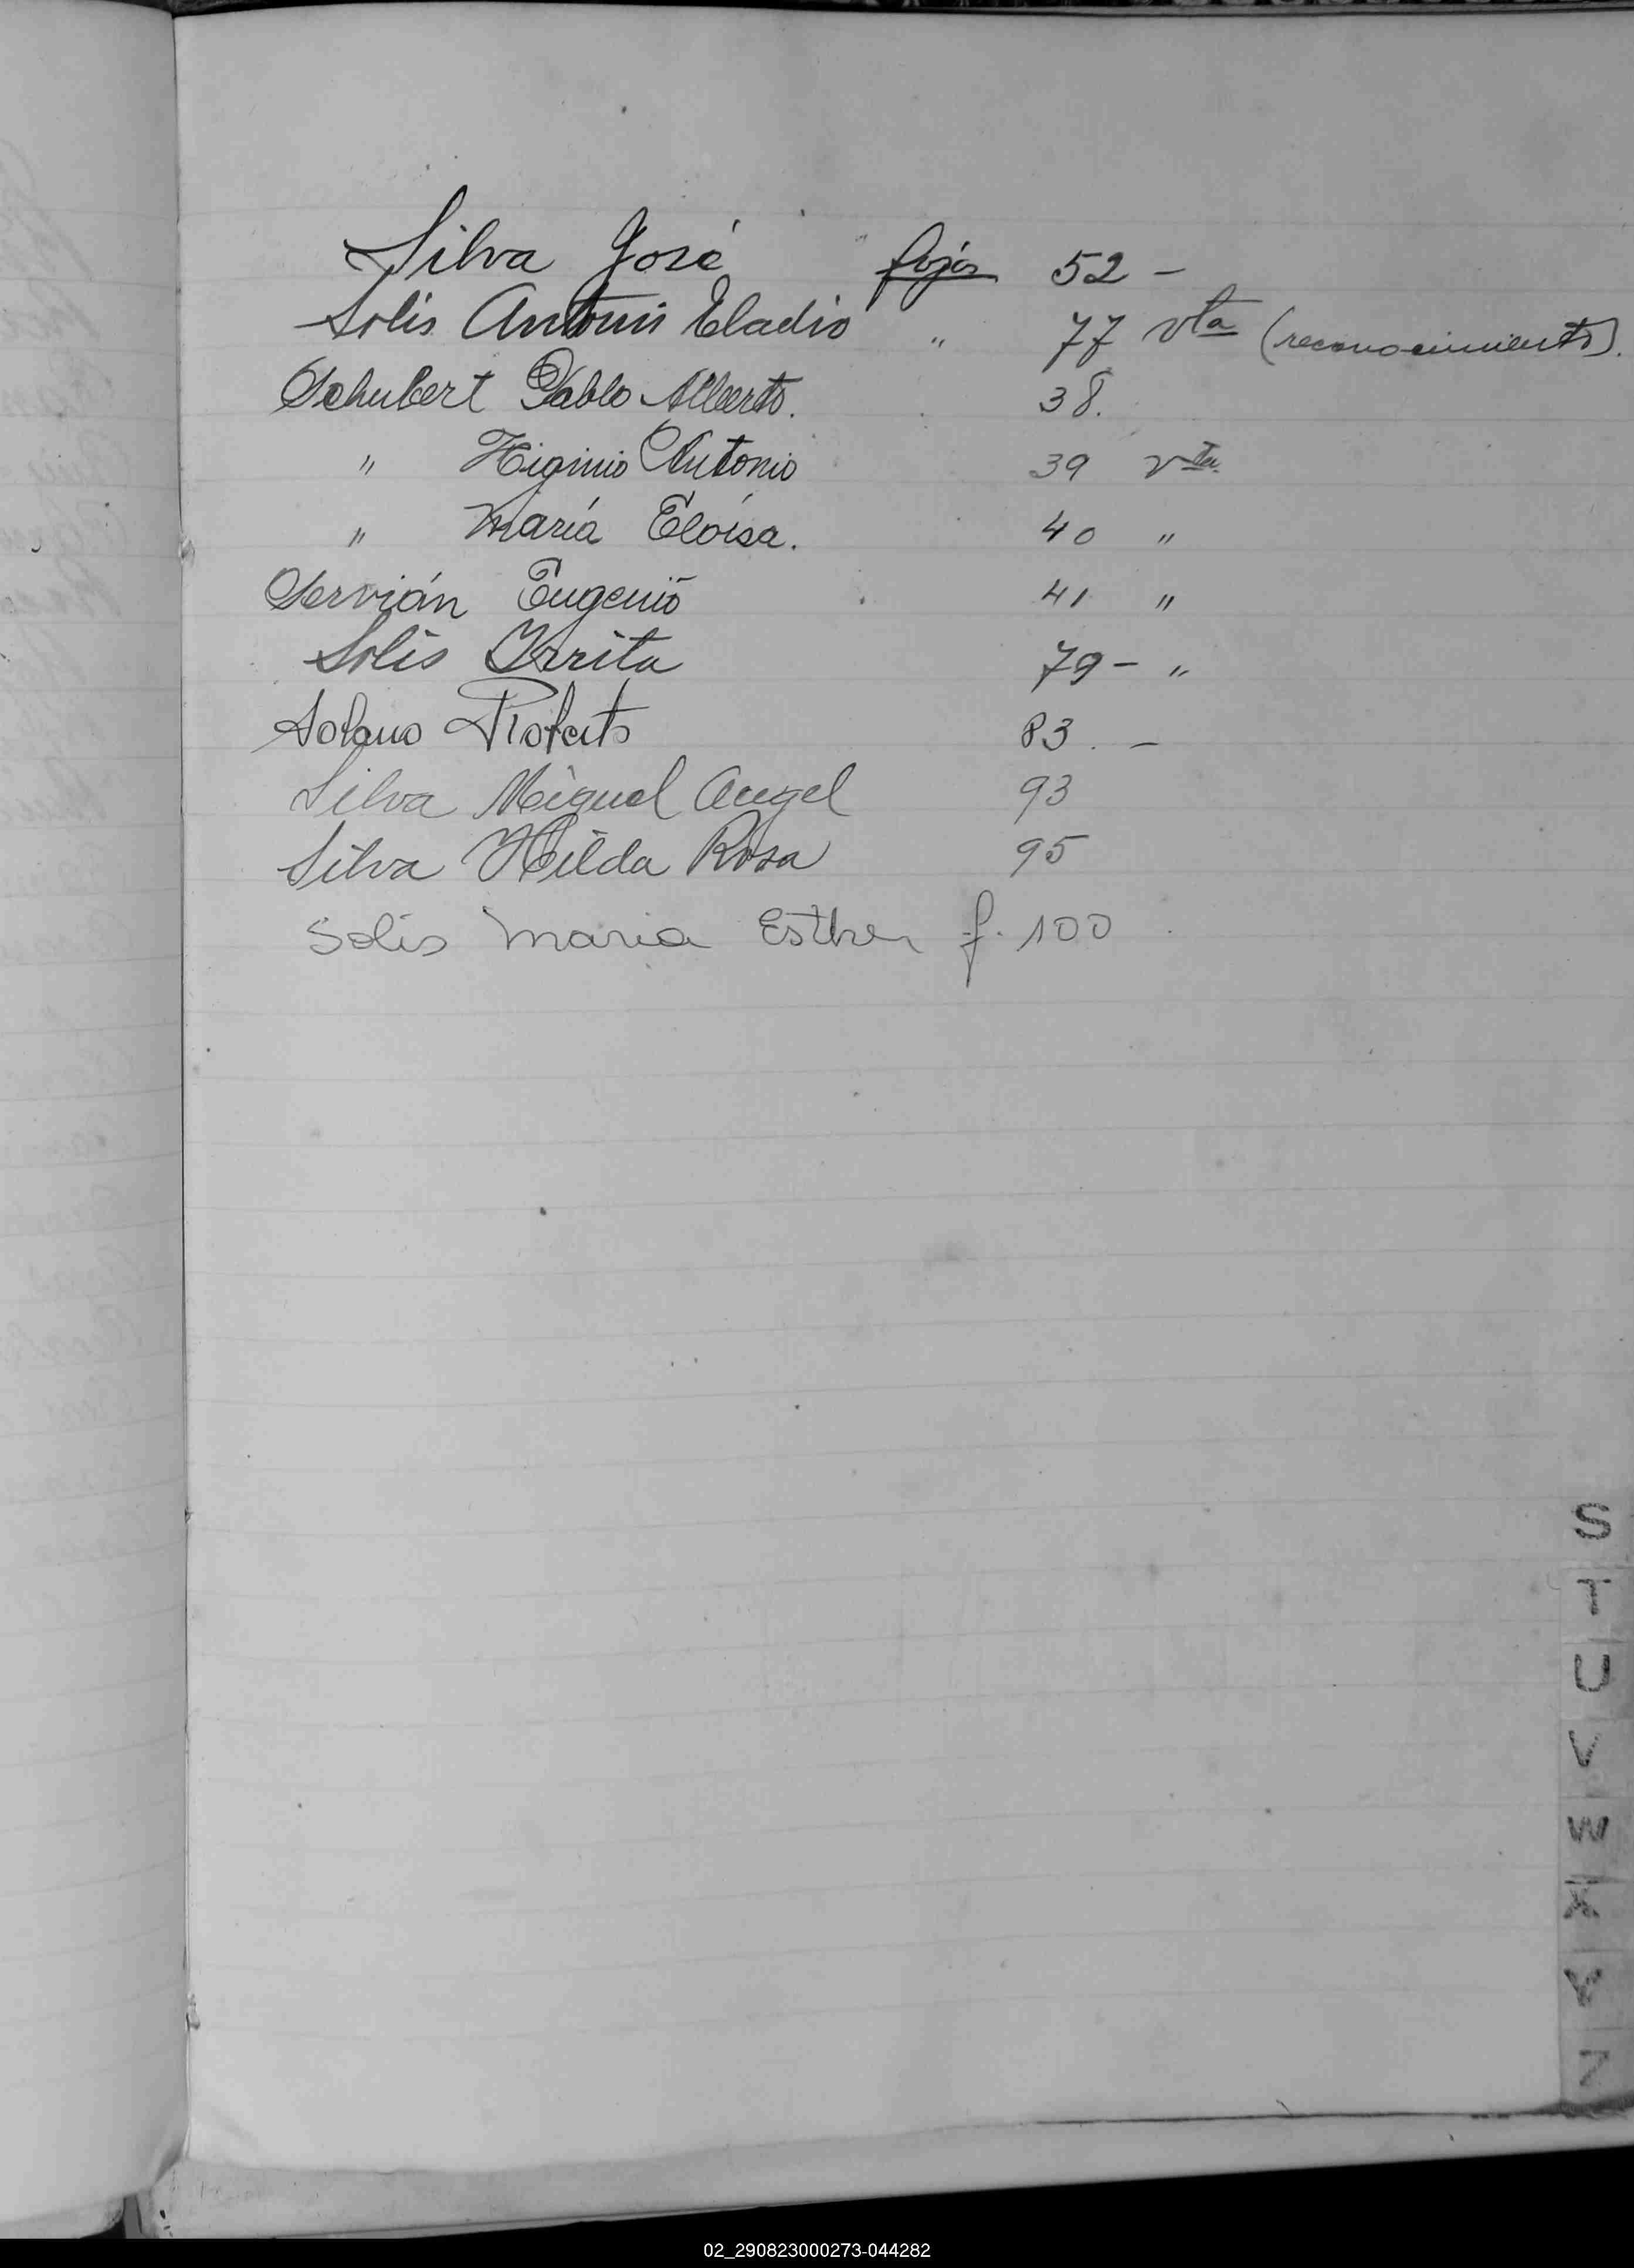 Silva José fojas 52 -
Solis Antonio Eladio " 77 vta (reconocimiento).
Schubert Pablo Alberto. 38.
" Higinio Antonio 39 vta.
" María Eloísa. 40 "
Servián Eugenio 41 "
Solis Irrita 79 - "
Solano Roberto 83. -
Silva Miguel Angel 93
Silva Hilda Rosa 95
Solis Maria Esther f. 100
S
T
U
V
W
X
Y
Z
02_290823000273-044282